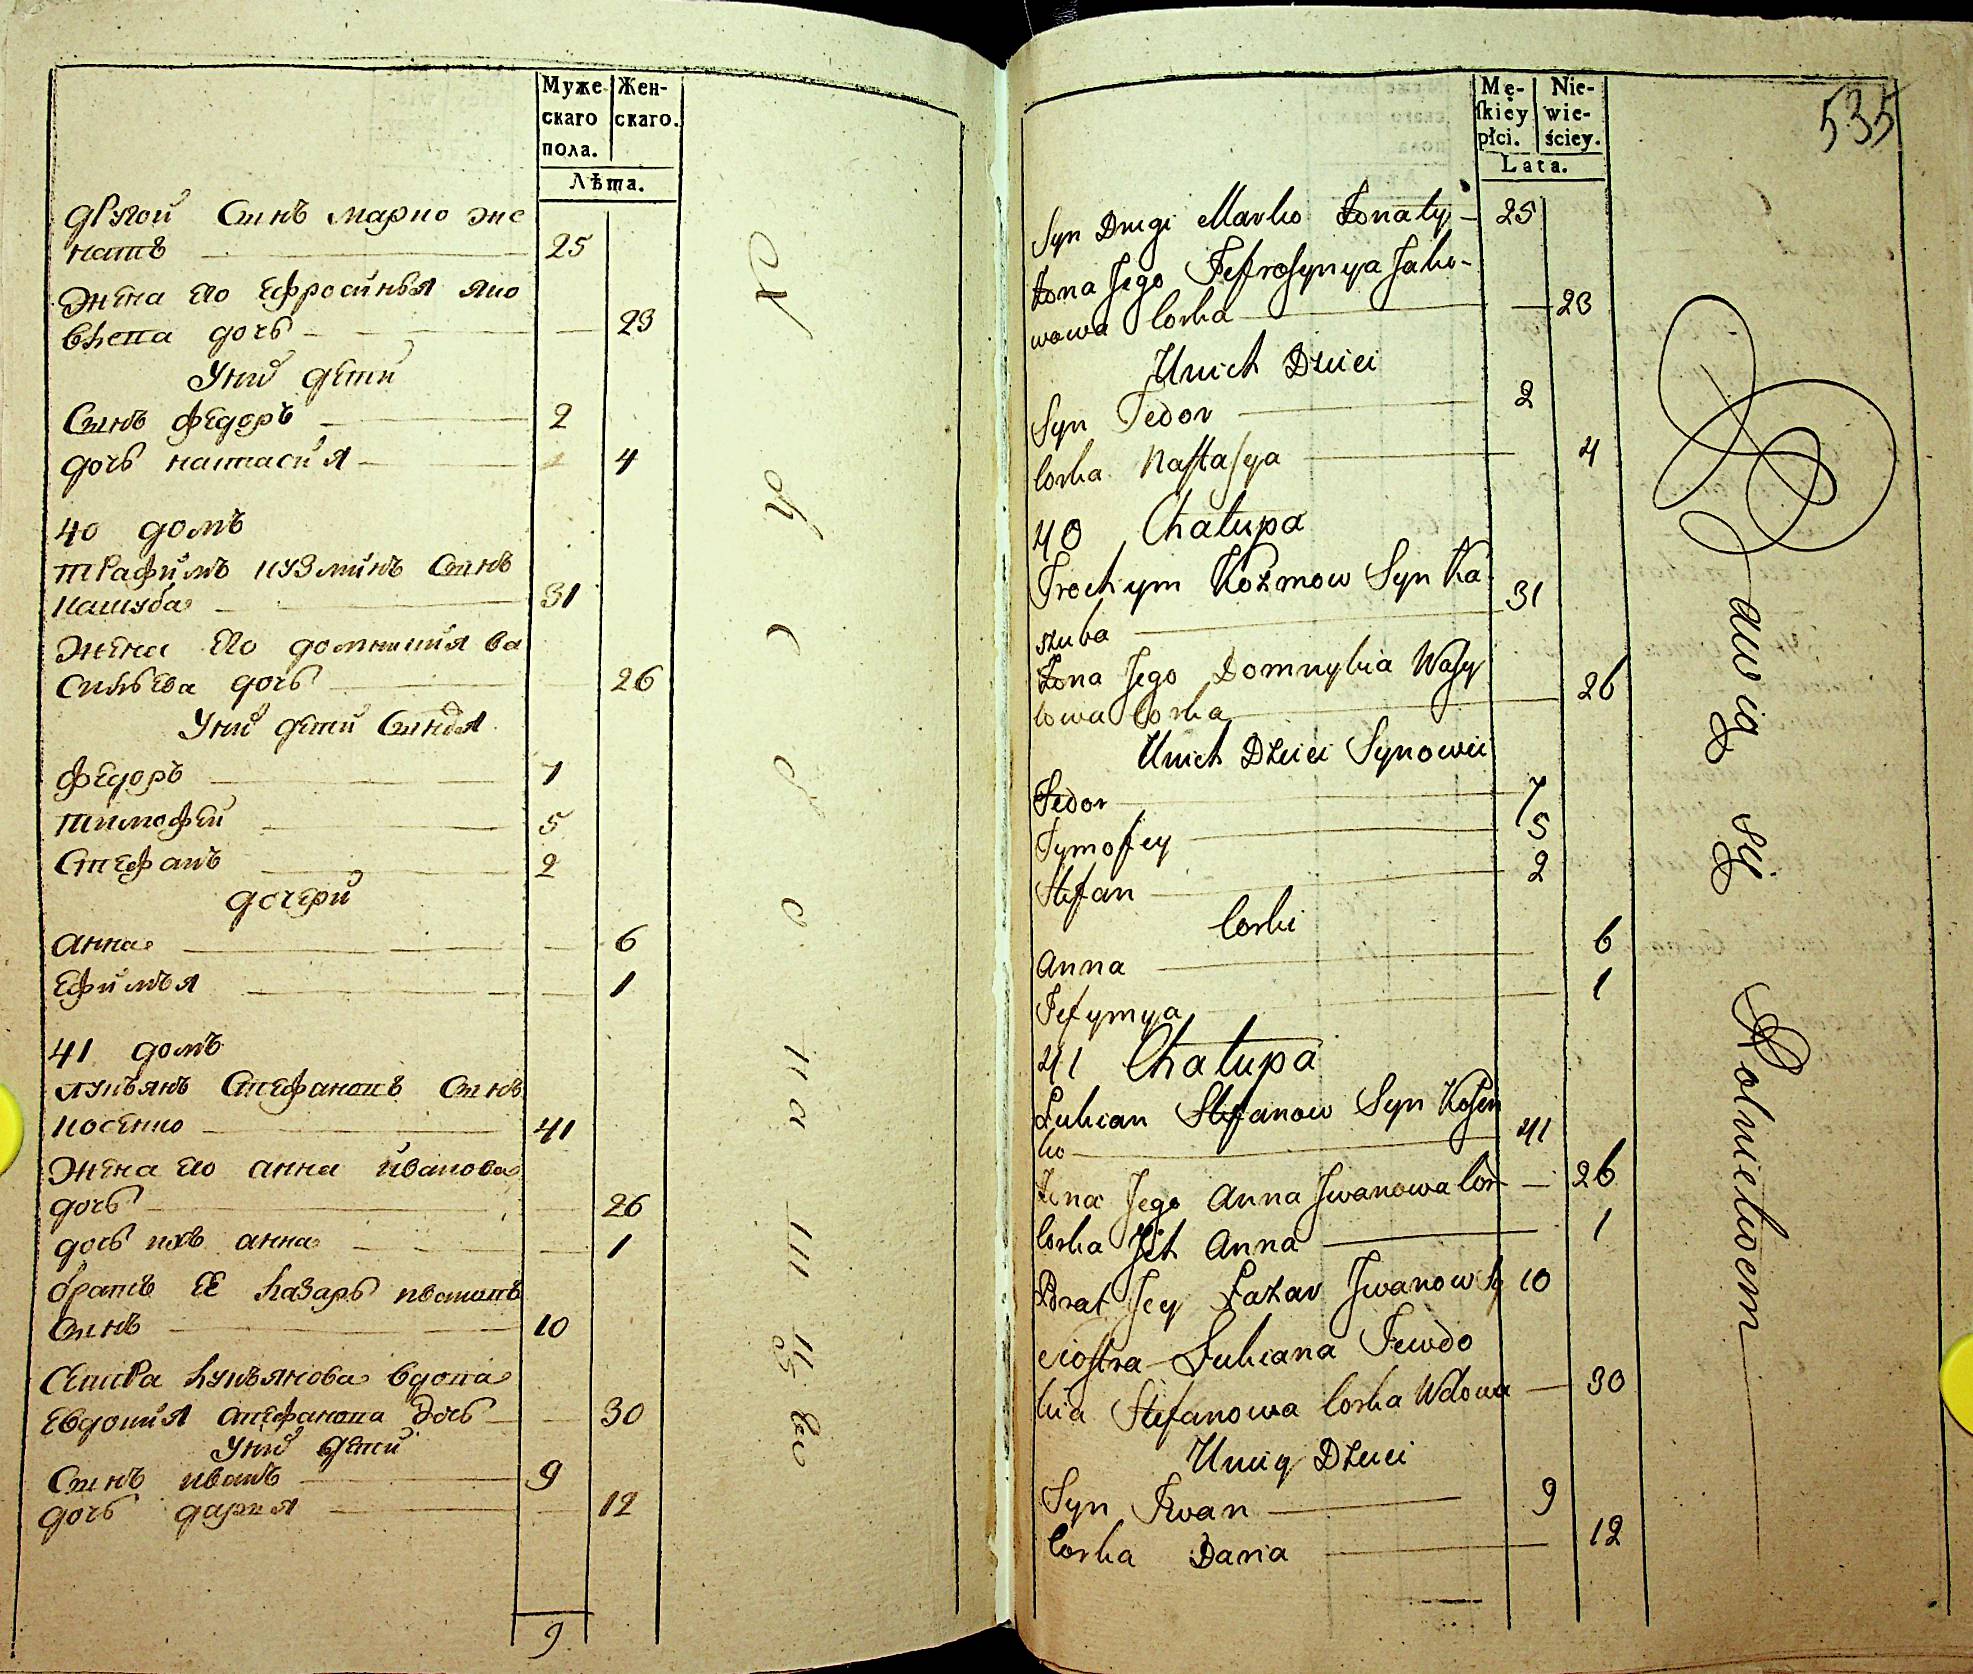 Муже
скаго
пола.
Жен-
скаго.
Лѣта.
другой Синъ марко же
натъ 25
Жена Его Ефросинья яко
влева дочь 23
Уних дети
Синъ федоръ 2
дочь настасия 4
40 домъ
трафимъ кузминъ Синъ
кашуба 31
Жена Его домникия ва
сильева дочь 26
Уних дети Синовя
федоръ 7
тимофей 5
Стефанъ 2
дочери
анна 6
Ефимья 1
41 домъ
лукъянъ Стефановъ Синъ
косенко 41
Жена Его анна иванова
дочь 26
дочь ихъ анна 1
братъ ЕЕ лазаръ ивановъ
Синъ 10
Сестра лукъянова вдова
Евдокия стефанова дочь 30
Уних дети
Синъ иванъ 9
дочь дария 12
9
535
Mę-
skiey
płci.
Nie-
wie-
ściey.
Lata.
Syn Drugi Marko Żonaty 25
Żona Jego Jefrosynya Jako-
wowa Corka 23
Unich Dzieci
Syn Fedor 2
Corka Nastasya 4
40 Chałupa
Trochym Kozmow Syn Ka
szuba 31
Żona Jego Domnykia Wasy
lowa Corka 26
Unich Dzieci Synowie
Fedor 7
Tymofey 5
Stefan 2
Corki
Anna 6
Jefymya 1
41 Chałupa
Łukian Stefanow Syn Kosen
ko 41
Żona Jego Anna Jwanowa Cor 26
Corka Jch Anna 1
Brat Jey Łazar Jwanow Sy 10
Siostra Łukiana Jewdo
kia Stefanowa Corka Wdowa 30
Uniey Dzieci
Syn Jwan 9
Corka Daria 12
Bawią się Rolnictwem